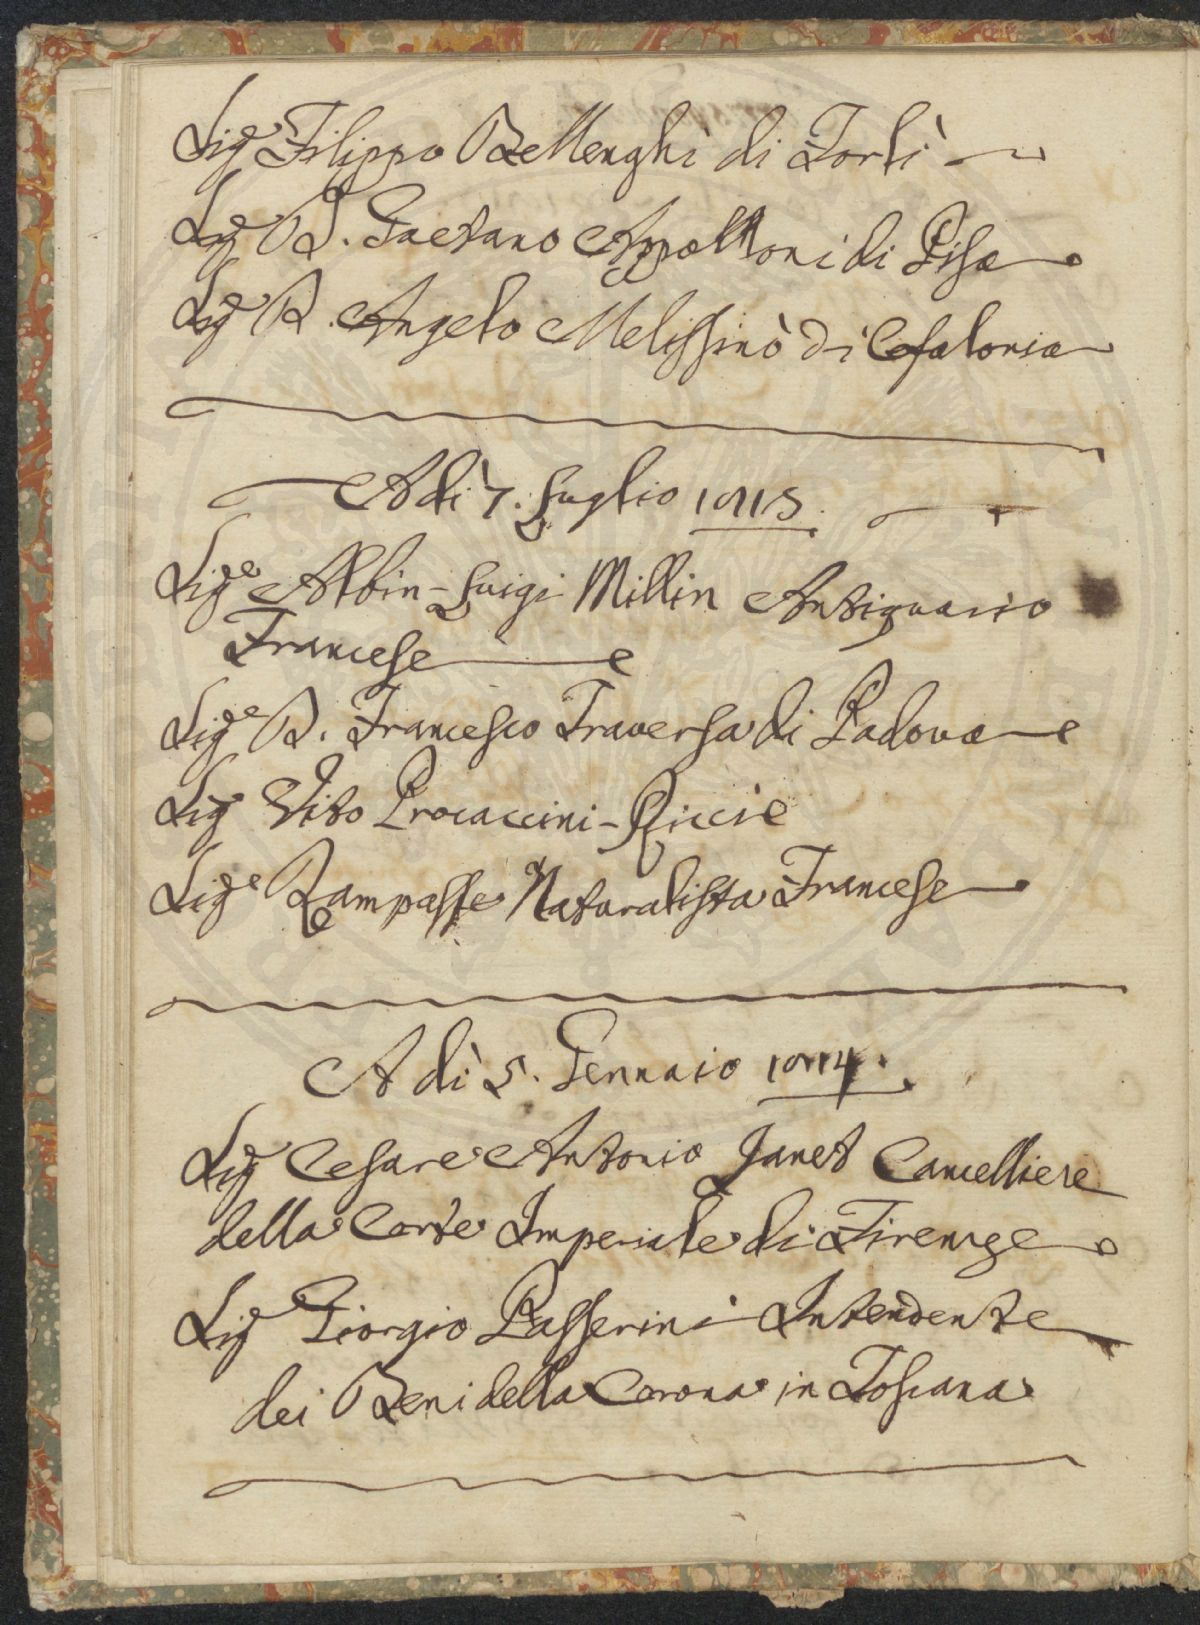 Sig.e Filippo Bellenghi di Forlì
Sig.e D. Gaetano Appolloni di Pisa
Sig.e D. Angelo Melissinò di Cefalonia
Adì 7. Luglio 1813.
Sig.e Albin-Luigi Millin Antiquario
Francese
Sig.e D. Francesco Traversa di Padova
Sig.e Vito Procaccini-Riccie
Sig.e Rampasse Naturalista Francese
Adì 5. Gennaio 1814.
Sig.e Cesare Antonio Janet Cancelliere
della Corte Imperiale di Firenze
Sig.e Giorgio Passerini Intendente
dei Beni della Corona in Toscana